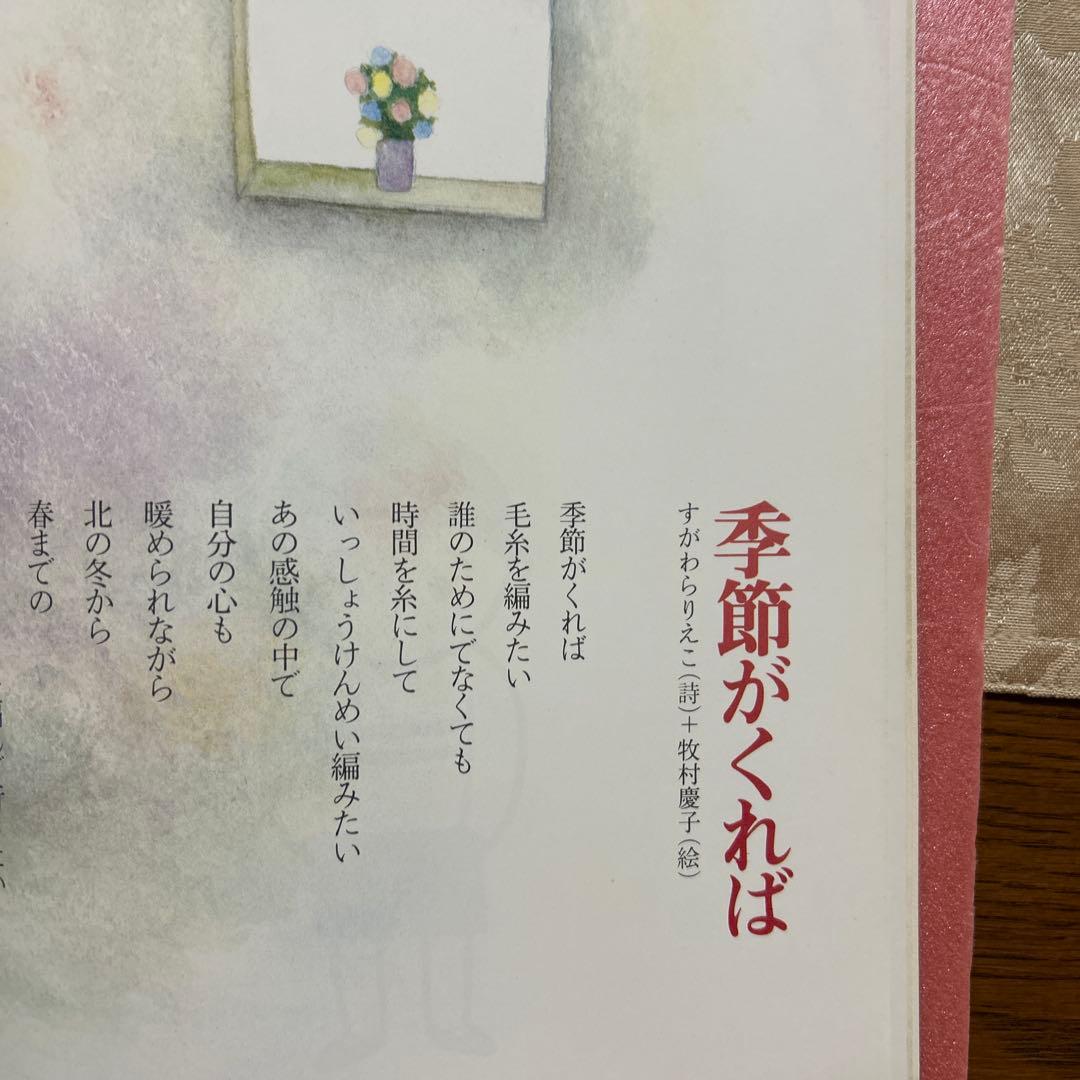 季節がくれば
すがわらりえこ(詩)+牧村慶子(絵)
季節がくれば
毛糸を編みたい
誰のためにでなくても
時間を糸にして
いっしょうけんめい編みたい
あの感触の中で
自分の心も
暖められながら
北の冬から
春までの